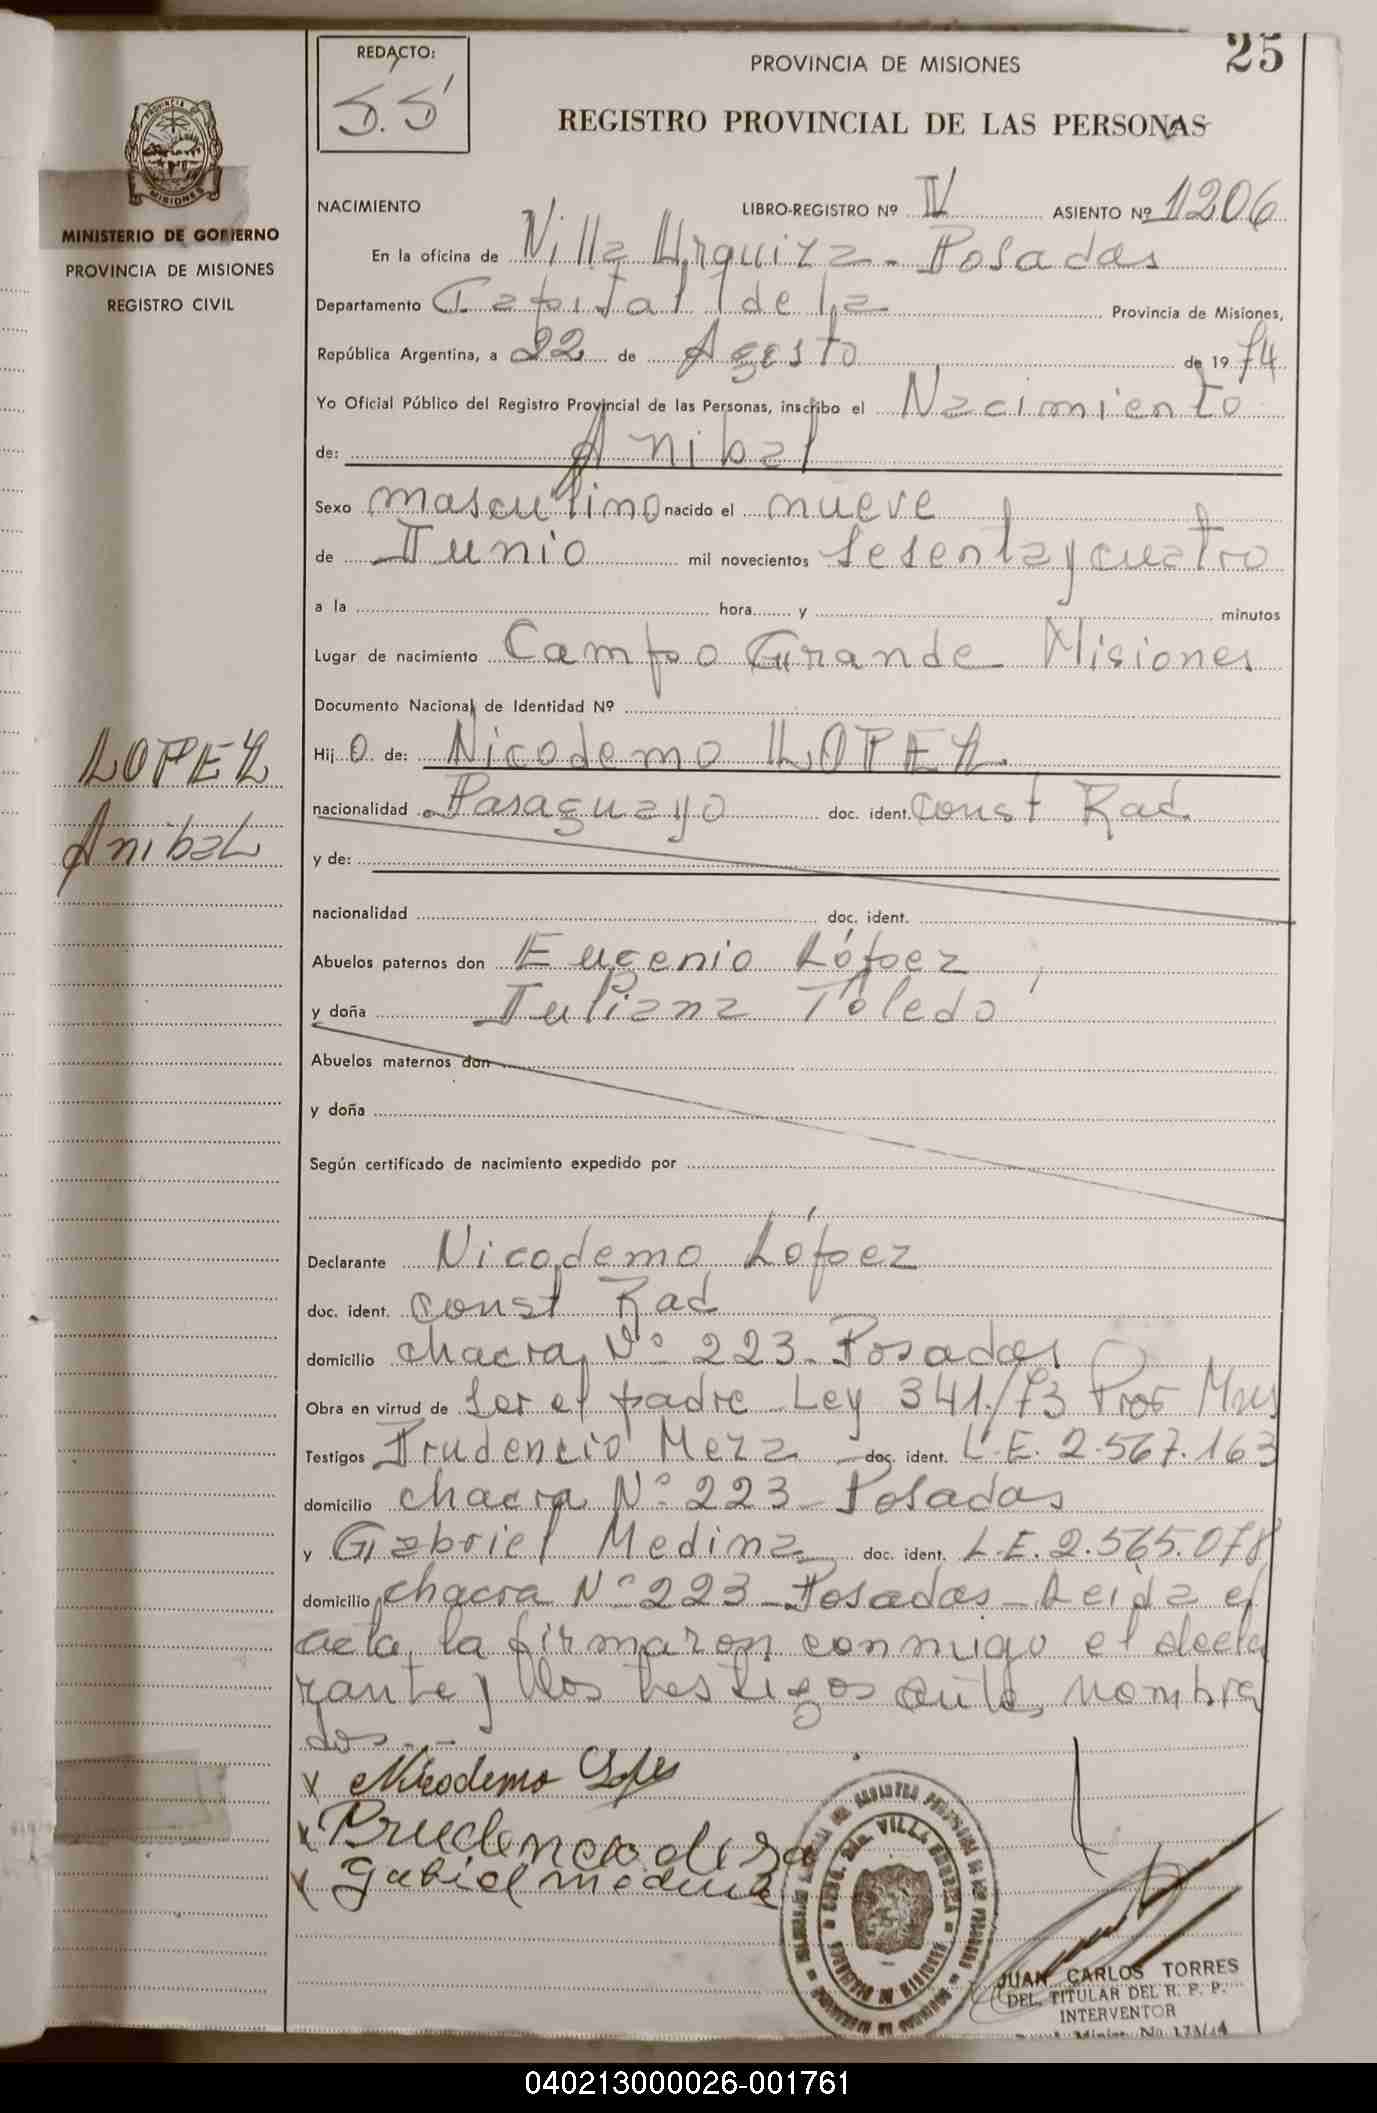 25
REDACTO:
S.S
PROVINCIA DE MISIONES
REGISTRO PROVINCIAL DE LAS PERSONAS
PROVINCIA DE
MISIONES
MINISTERIO DE GOBIERNO
PROVINCIA DE MISIONES
REGISTRO CIVIL
NACIMIENTO LIBRO-REGISTRO Nº IV ASIENTO Nº 1206
En la oficina de Villa Urquiza - Posadas
Departamento Capital de la Provincia de Misiones,
República Argentina, a 22 de Agosto de 19 74
Yo Oficial Público del Registro Provincial de las Personas, inscribo el Nacimiento
de: Anibal
Sexo masculino nacido el nueve
de Junio mil novecientos sesenta y cuatro
a la hora y minutos
Lugar de nacimiento Campo Grande Misiones
Documento Nacional de Identidad Nº
Hijo de: Nicodemo LOPEZ
LOPEZ
Anibal
nacionalidad Paraguayo doc. ident. const Rad
y de:
nacionalidad doc. ident.
Abuelos paternos don Eugenio López
y doña Juliana Toledo
Abuelos maternos don
y doña
Según certificado de nacimiento expedido por
Declarante Nicodemo López
doc. ident. const Rad
domicilio chacra Nº 223 - Posadas
Obra en virtud de ser el padre Ley 341/73 Pror Mns
Testigos Prudencio Meza - doc. ident. L.E. 2.567.163
domicilio chacra Nº 223 - Posadas
y Gabriel Medina doc. ident. L.E. 2.565.078
domicilio chacra Nº 223 - Posadas - Leida el
acta, la firmaron conmigo el decla
rante y los testigos ante nombra
dos. -
x Nicodemo Lopes
x Prudencio Mesa
x gabiel medina
VILLA URQUIZA
JUAN CARLOS TORRES
DEL. TITULAR DEL R. P. P.
INTERVENTOR
040213000026-001761